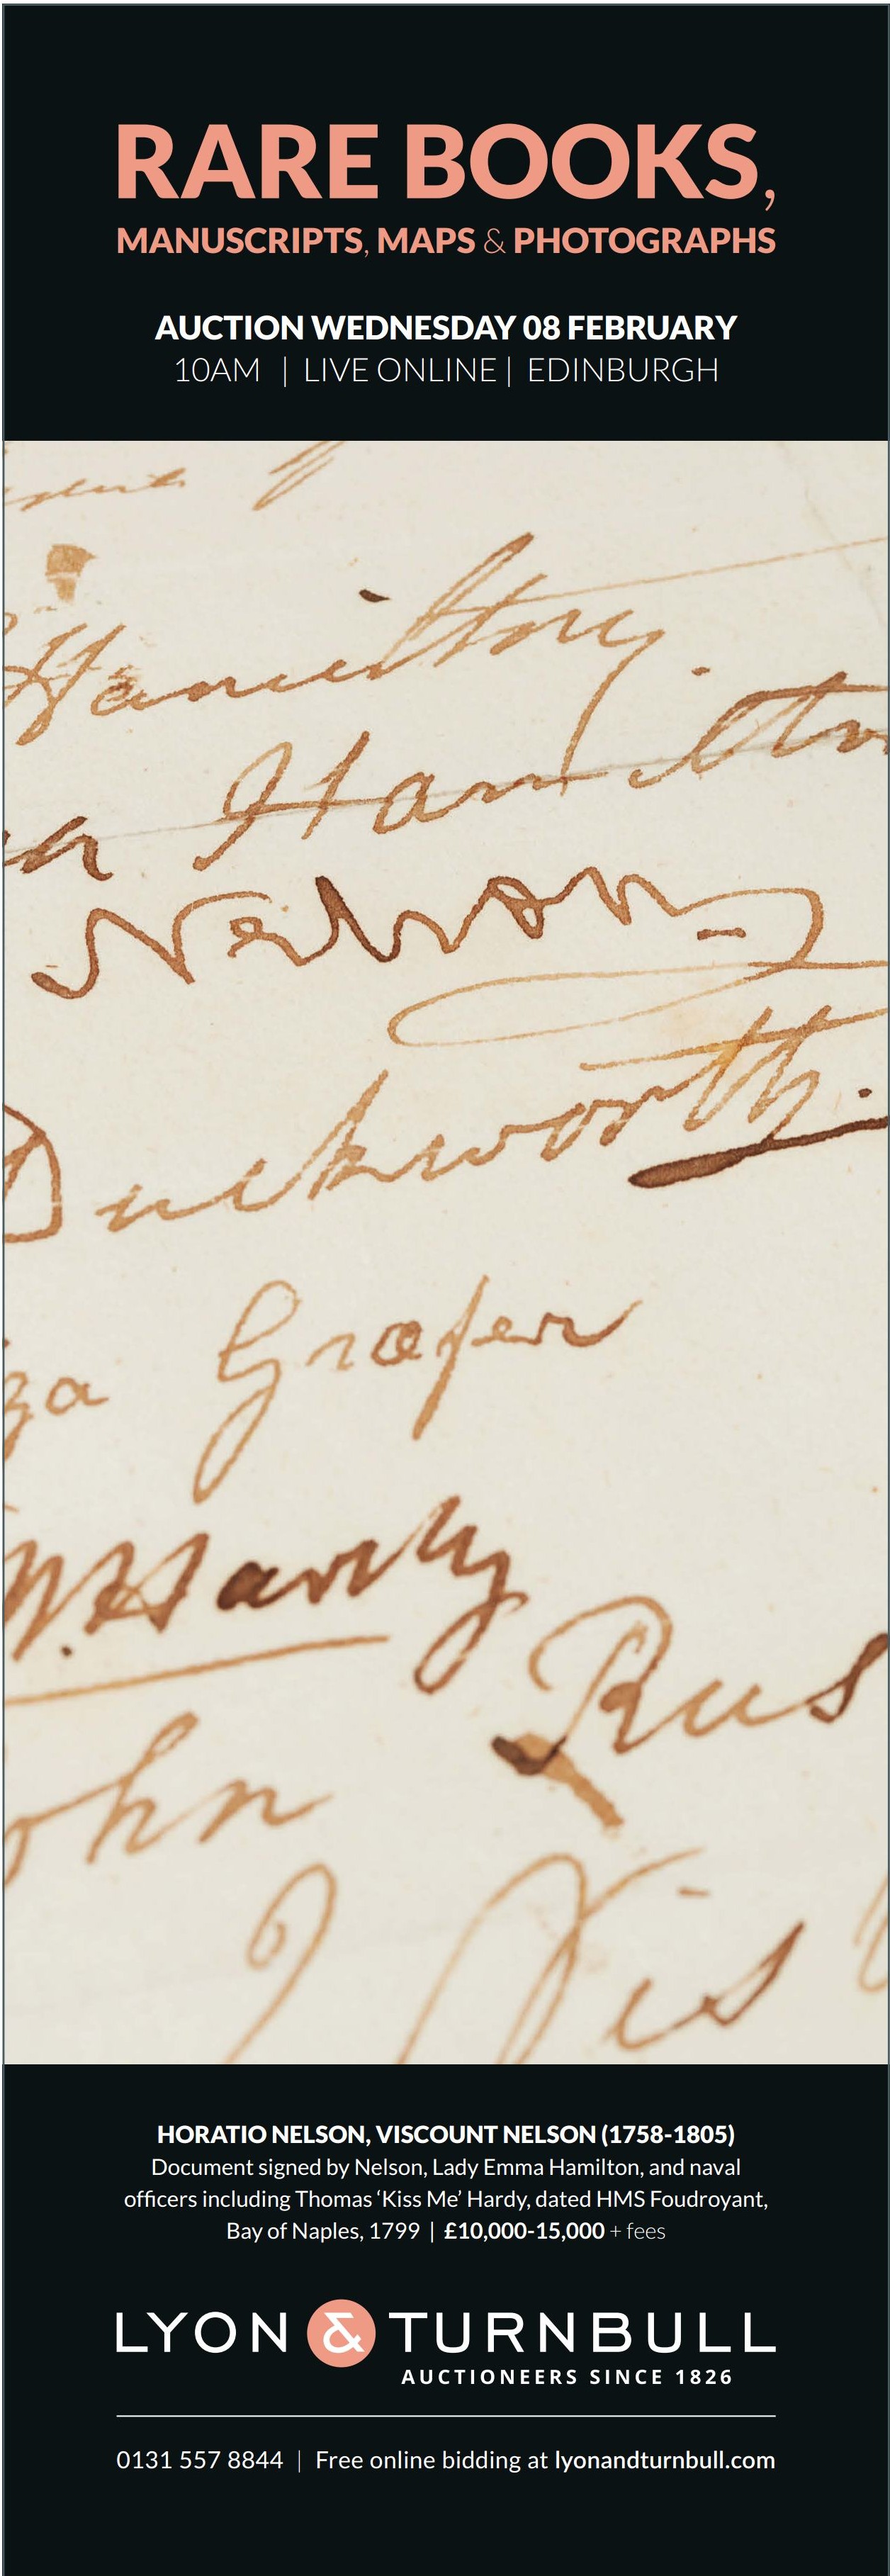 RARE BOOKS,
MANUSCRIPTS, MAPS & PHOTOGRAPHS
AUCTION WEDNESDAY 08 FEBRUARY
10AM | LIVE ONLINE | EDINBURGH
Hamilton
a Hamilton
Nelson
Duckworth.
za Græfer
Hardy
Rus
ohn
Vis
HORATIO NELSON, VISCOUNT NELSON (1758-1805)
Document signed by Nelson, Lady Emma Hamilton, and naval
officers including Thomas ‘Kiss Me’ Hardy, dated HMS Foudroyant,
Bay of Naples, 1799 | £10,000-15,000 + fees
LYON & TURNBULL
AUCTIONEERS SINCE 1826
0131 557 8844 | Free online bidding at lyonandturnbull.com